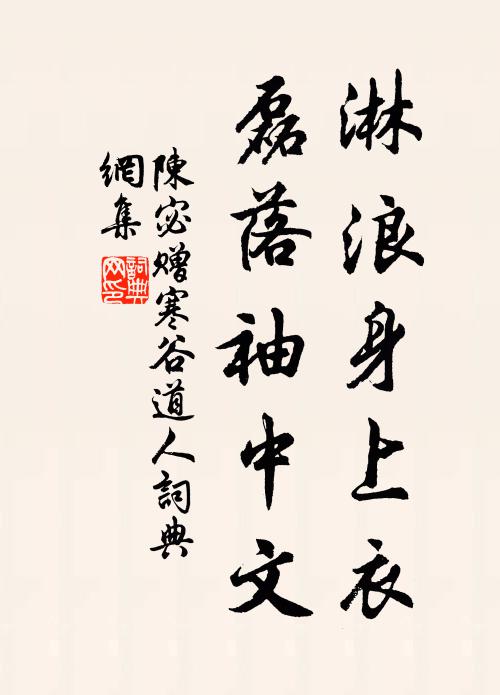 淋浪身上衣
磊落袖中文
陳宓贈寒谷道人詞典
網集
詞典網印